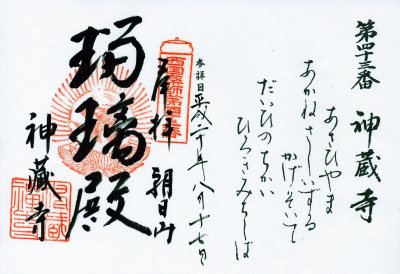 第四十三番　神蔵寺
あさひやま
あかねさしいずる
かげそいて
だいひのちかい
ひろきみちしば
参拝日平成二十年八月十七日
奉拝　朝日山
瑠璃殿
神蔵寺